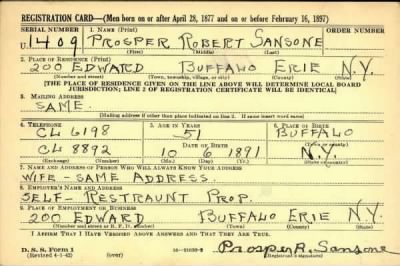 REGISTRATION CARD—(Men born on or after April 28, 1877 and on or before February 16, 1897)
SERIAL NUMBER 1. NAME (Print) ORDER NUMBER
U 1409 PROSPER ROBERT SANSONE
(First) (Middle) (Last)
2. PLACE OF RESIDENCE (Print)
200 EDWARD BUFFALO ERIE N.Y.
(Number and street) (Town, township, village, or city) (County) (State)
[THE PLACE OF RESIDENCE GIVEN ON THE LINE ABOVE WILL DETERMINE LOCAL BOARD
JURISDICTION; LINE 2 OF REGISTRATION CERTIFICATE WILL BE IDENTICAL]
3. MAILING ADDRESS
SAME.
[Mailing address if other than place indicated on line 2. If same insert word same]
4. TELEPHONE 5. AGE IN YEARS 6. PLACE OF BIRTH
CL 6198 51 BUFFALO
DATE OF BIRTH (Town or county)
CL 8892 10 6 1891 N.Y.
(Exchange) (Number) (Mo.) (Day) (Yr.) (State or country)
7. NAME AND ADDRESS OF PERSON WHO WILL ALWAYS KNOW YOUR ADDRESS
WIFE - SAME ADDRESS.
8. EMPLOYER'S NAME AND ADDRESS
SELF- RESTRAUNT PROP.
9. PLACE OF EMPLOYMENT OR BUSINESS
200 EDWARD BUFFALO ERIE N.Y.
(Number and street or R. F. D. number) (Town) (County) (State)
I AFFIRM THAT I HAVE VERIFIED ABOVE ANSWERS AND THAT THEY ARE TRUE.
D. S. S. Form 1
(Revised 4-1-42) (over) Prosper R. Sansone
(Registrant's signature)